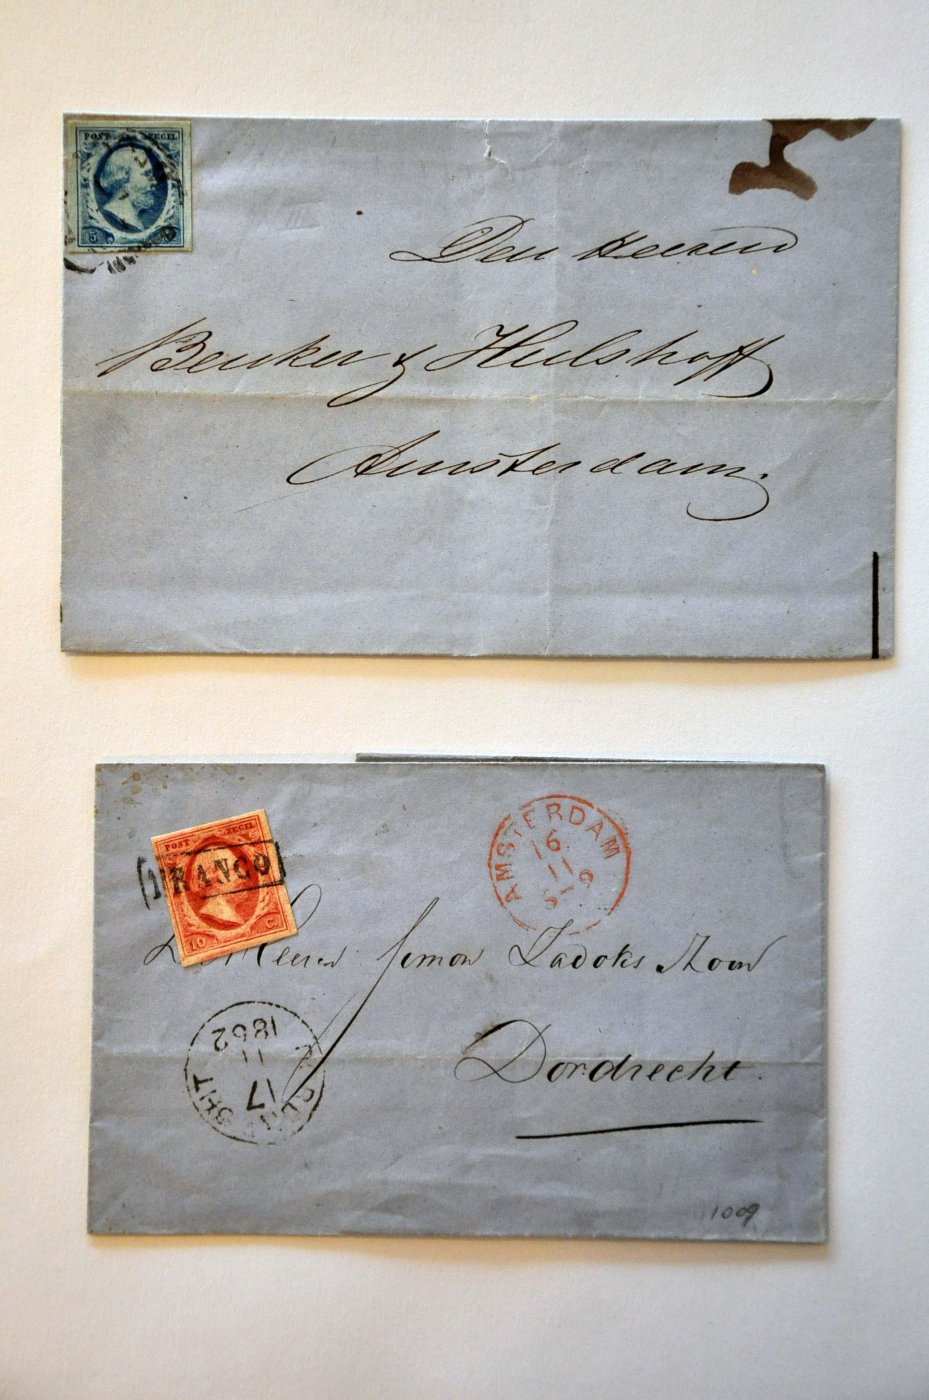 POST ZEGEL
5
Den Heeren
Beuker & Hulshoff
Amsterdam.
POST ZEGEL
FRANCO
10 C
AMSTERDAM
16
11
Heeren Simon Ladoks Zoon
Dordrecht.
17
11
1862
1009